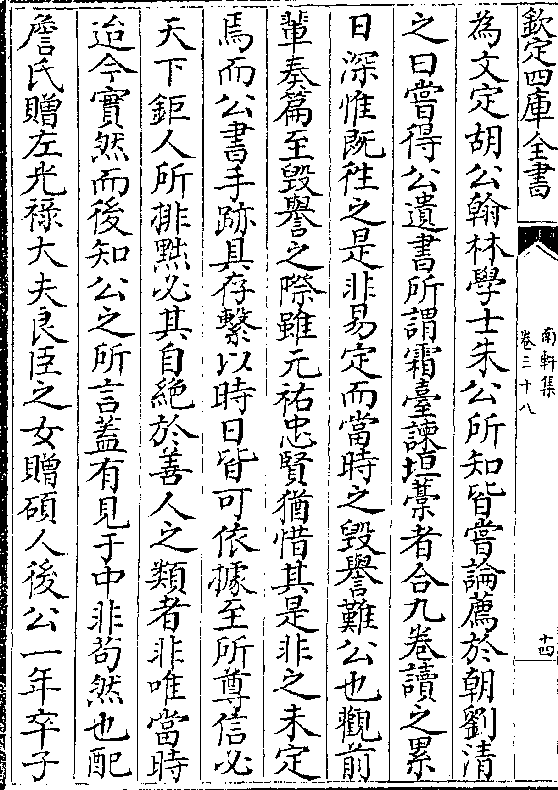 欽定四庫全書
南軒集
卷三十八
十四
為文定胡公翰林學士朱公所知皆嘗論薦於朝劉清
之曰嘗得公遺書所謂霜臺諫垣藁者合九卷讀之累
日深惟既徃之是非易定而當時之毀譽難公也觀前
輩奏篇至毀譽之際雖元祐忠賢猶惜其是非之未定
焉而公書手跡具存繫以時日皆可依據至所尊信必
天下鉅人所排黜必其自絶於善人之類者非唯當時
迨今實然而後知公之所言葢有見于中非茍然也配
詹氏贈左光祿大夫良臣之女贈碩人後公一年卒子